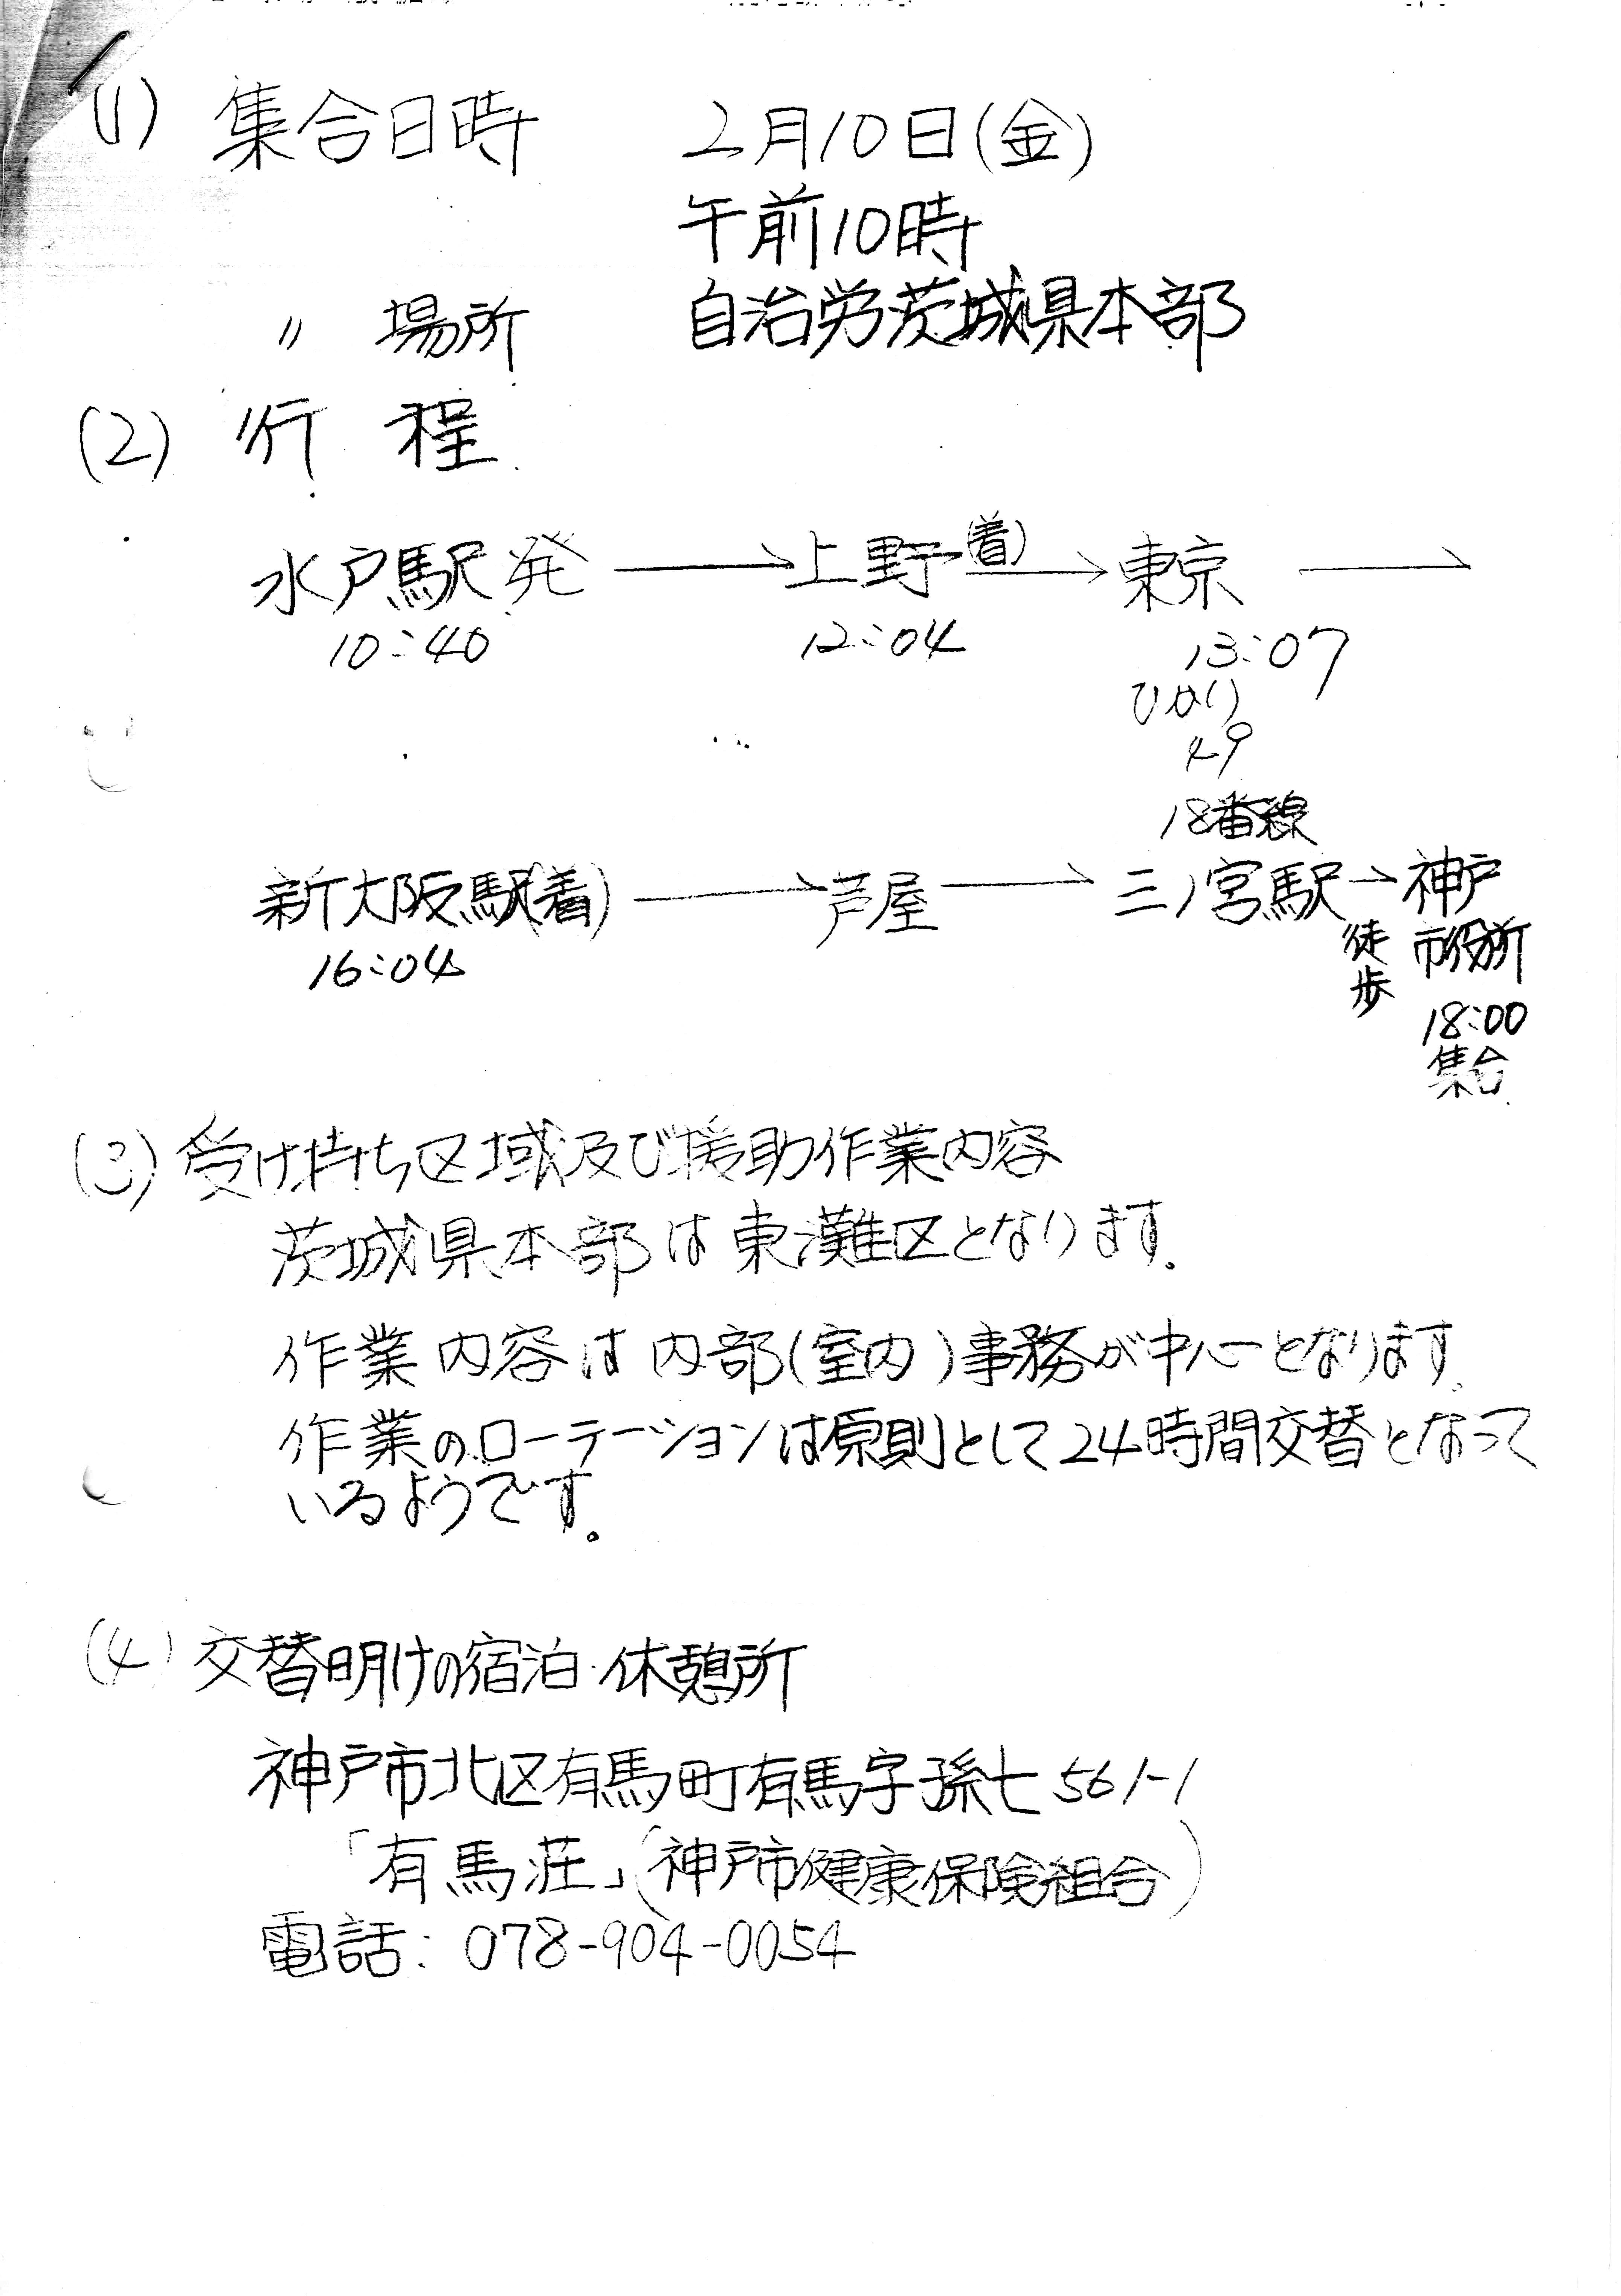 (1) 集合日時 2月10日(金)
午前10時
〃 場所 自治労茨城県本部
(2) 行程
水戸駅発 → 上野(着) → 東京 →
10:40 12:04 13:07
ひかり
49
18番線
新大阪駅(着) → 芦屋 → 三ノ宮駅 → 神戸
徒歩 市役所
16:04
18:00
集合
(3) 受け持ち区域及び援助作業内容
茨城県本部は東灘区となります。
作業内容は内部(室内)事務が中心となります。
作業のローテーションは原則として24時間交替となって
いるようです。
(4) 交替明けの宿泊・休憩所
神戸市北区有馬町有馬字孫七561-1
「有馬荘」(神戸市健康保険組合)
電話:078-904-0054